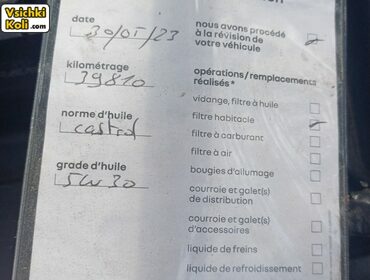 Vsichki
Koli.com
date
30/01/23
nous avons procédé
à la révision de
votre véhicule
kilométrage
39810
opérations/remplacements
réalisés*
vidange, filtre à huile
norme d'huile
castrol
filtre habitacle
filtre à carburant
filtre à air
grade d'huile
5W30
bougies d'allumage
courroie et galet(s)
de distribution
courroie et galet(s)
d'accessoires
liquide de freins
liquide de refroidissement